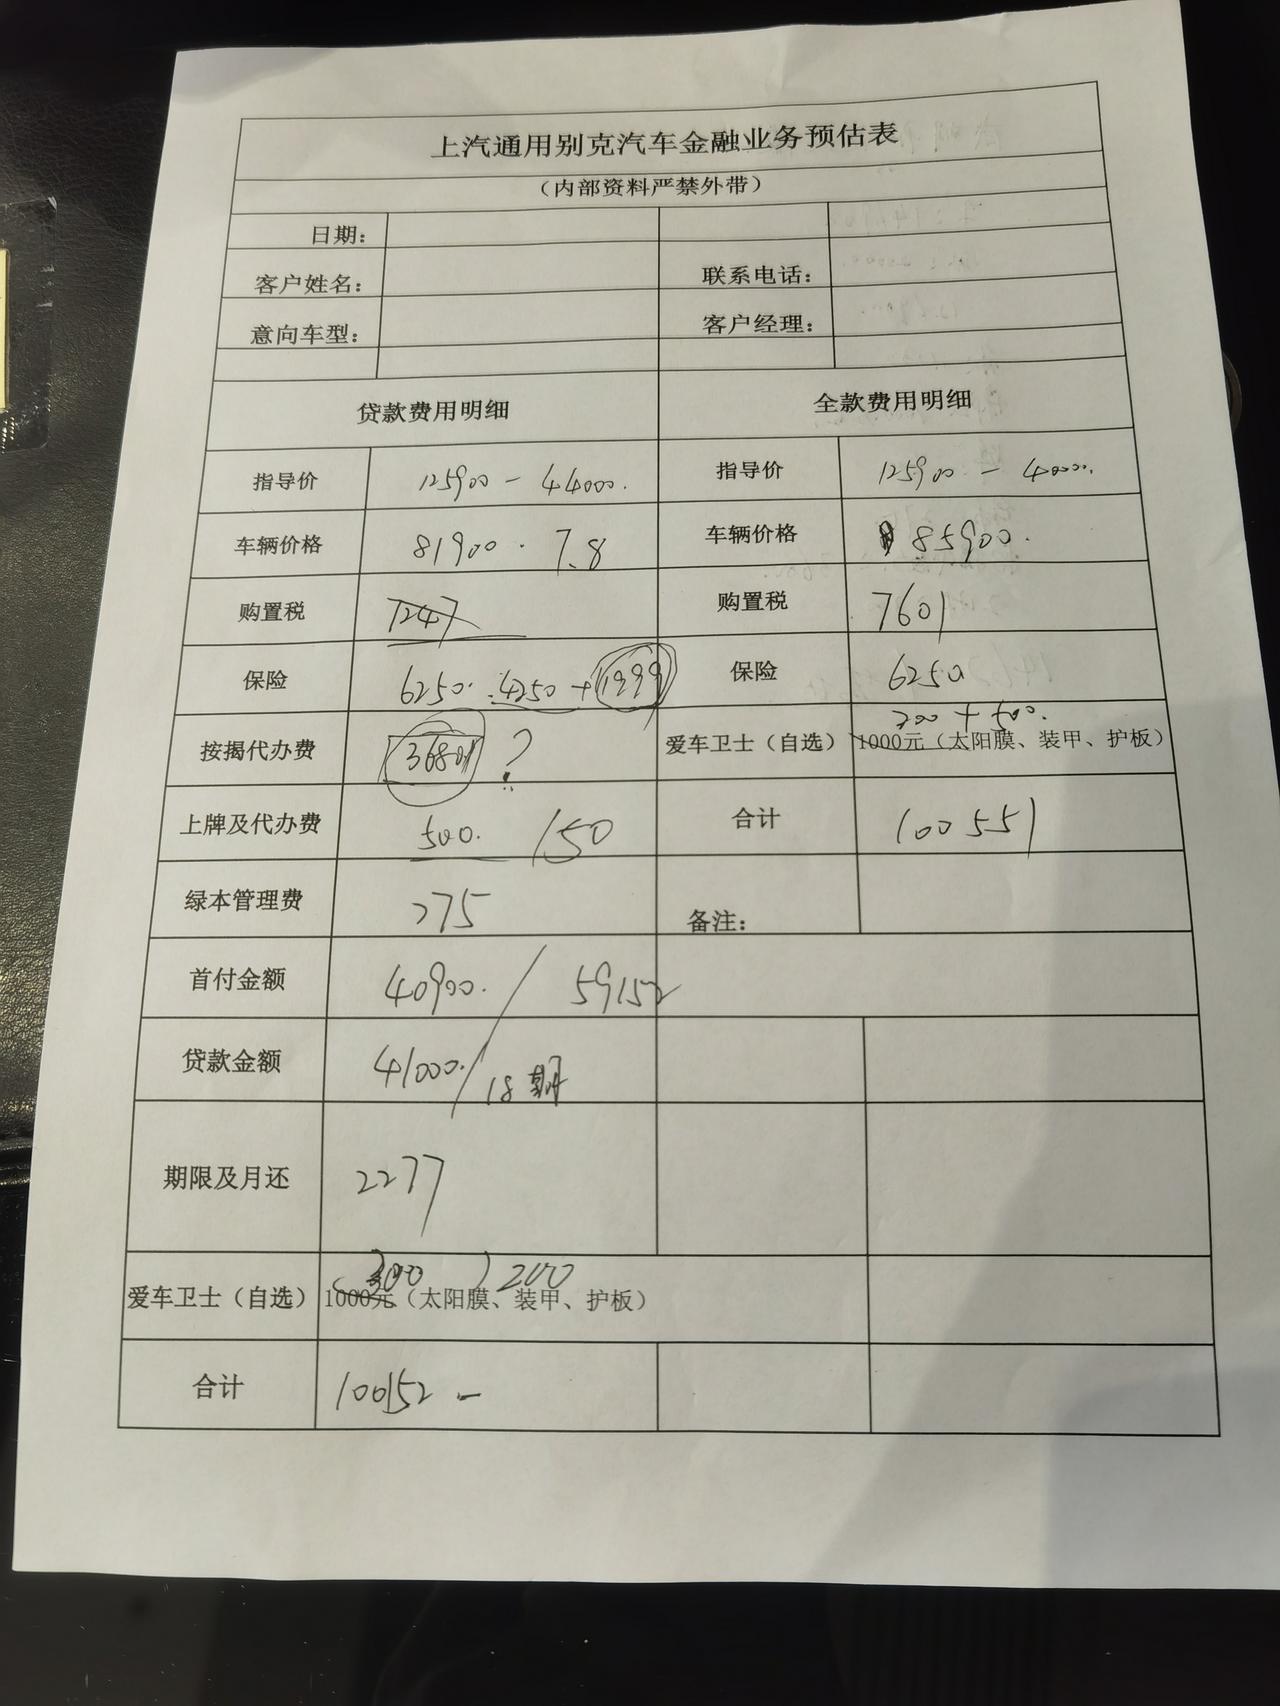 上汽通用别克汽车金融业务预估表
（内部资料严禁外带）
日期：
客户姓名： 联系电话：
意向车型： 客户经理：
贷款费用明细 全款费用明细
指导价 125900 - 44000. 指导价 125900 - 40000.
车辆价格 81900 . 7.8 车辆价格 85900.
购置税 7247 购置税 7601
保险 6250. 4250 + 1999 保险 6250
300 + 500.
按揭代办费 3680 ? 爱车卫士（自选） 1000元（太阳膜、装甲、护板）
上牌及代办费 500. 150 合计 100551
绿本管理费 275 备注：
首付金额 40900. / 59152
贷款金额 41000. / 18期
期限及月还 2277
300 200
爱车卫士（自选） 1000元（太阳膜、装甲、护板）
合计 100152 -